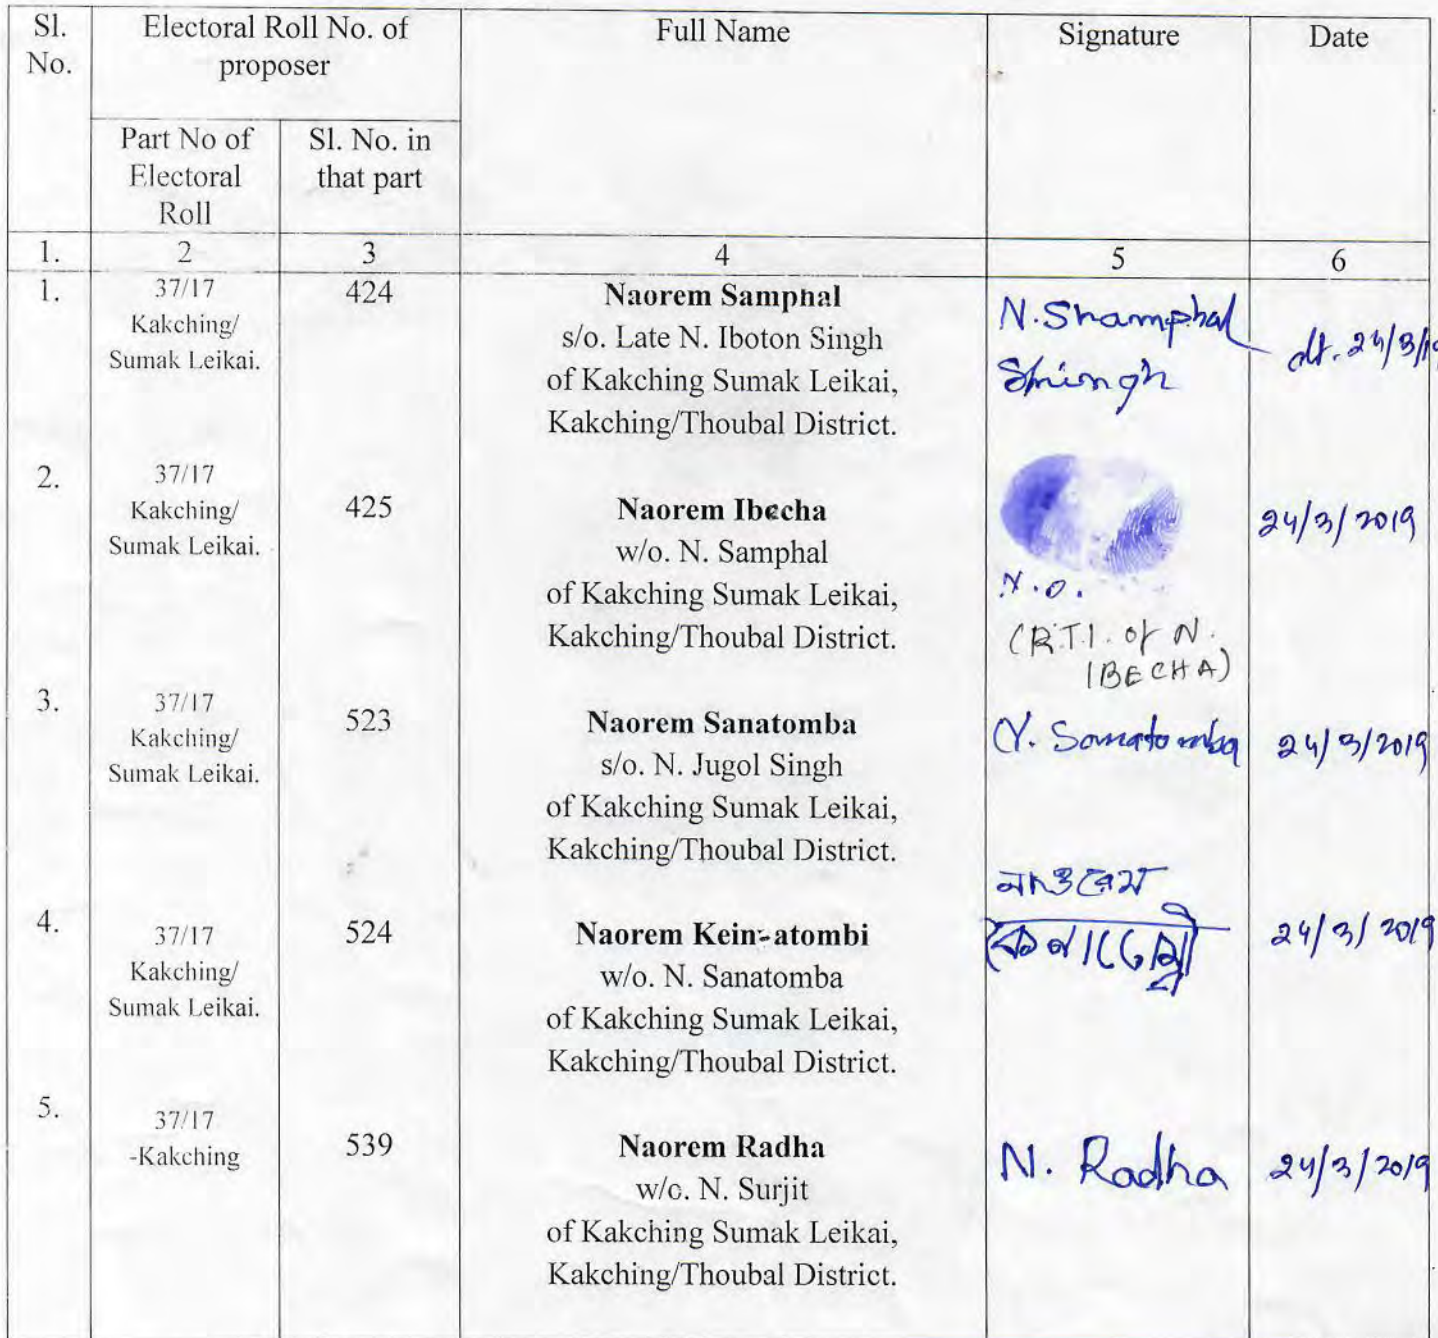 Sl. No.
Electoral Roll No. of proposer
Full Name
Signature
Date
Part No of Electoral Roll
Sl. No. in that part
1. 2 3 4 5 6
1.
37/17
Kakching/
Sumak Leikai.
424
Naorem Samphal
s/o. Late N. Iboton Singh
of Kakching Sumak Leikai,
Kakching/Thoubal District.
N. Shamphal
Shingh
dt. 24/3/19
2.
37/17
Kakching/
Sumak Leikai.
425
Naorem Ibecha
w/o. N. Samphal
of Kakching Sumak Leikai,
Kakching/Thoubal District.
(R.T.I. of N.
IBECHA)
24/3/2019
3.
37/17
Kakching/
Sumak Leikai.
523
Naorem Sanatomba
s/o. N. Jugol Singh
of Kakching Sumak Leikai,
Kakching/Thoubal District.
Sanatomba
24/3/2019
4.
37/17
Kakching/
Sumak Leikai.
524
Naorem Kein-atombi
w/o. N. Sanatomba
of Kakching Sumak Leikai,
Kakching/Thoubal District.
নাওরেম
24/3/2019
5.
37/17
-Kakching
539
Naorem Radha
w/o. N. Surjit
of Kakching Sumak Leikai,
Kakching/Thoubal District.
N. Radha
24/3/2019